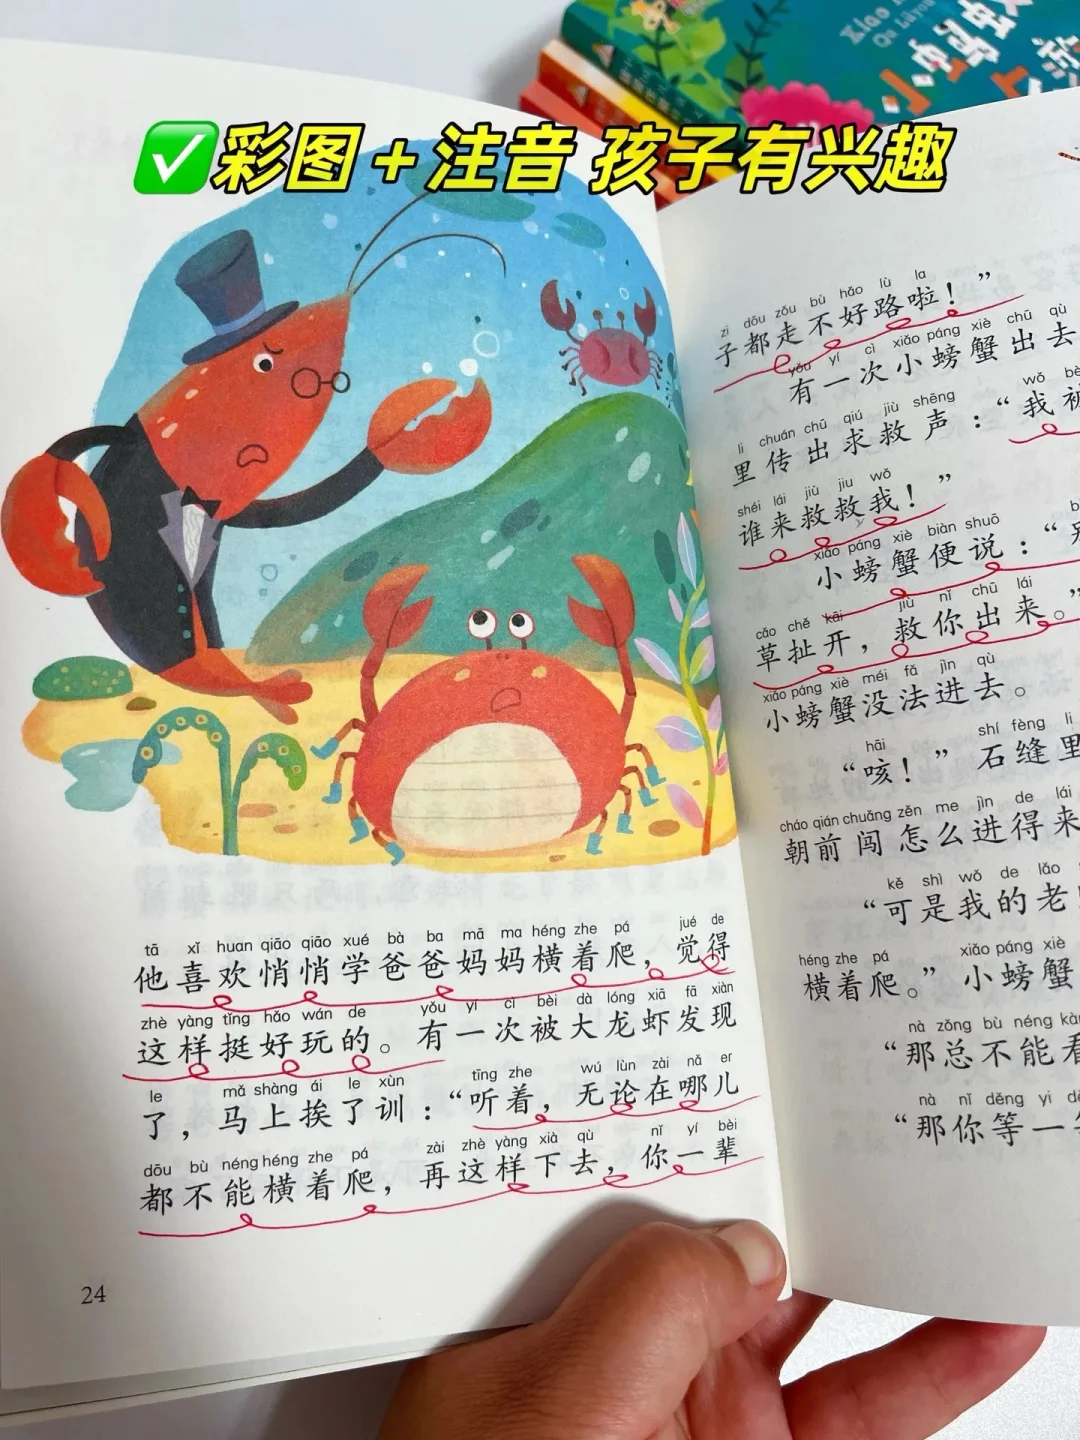 ✅彩图+注音 孩子有兴趣
tā xǐ huan qiāo qiāo xué bà ba mā ma héng zhe pá jué de
他喜欢悄悄学爸爸妈妈横着爬，觉得
zhè yàng tǐng hǎo wán de yǒu yí cì bèi dà lóng xiā fā xiàn
这样挺好玩的。有一次被大龙虾发现
le mǎ shàng ái le xùn tīng zhe wú lùn zài nǎ er
了，马上挨了训：“听着，无论在哪儿
dōu bù néng héng zhe pá zài zhè yàng xià qù nǐ yí bèi
都不能横着爬，再这样下去，你一辈
24
zi dōu zǒu bù hǎo lù la
子都走不好路啦！”
yǒu yí cì xiǎo páng xiè chū qù
有一次小螃蟹出去
li chuán chū qiú jiù shēng wǒ bè
里传出求救声：“我被
shéi lái jiù jiu wǒ
谁来救救我！”
xiǎo páng xiè biàn shuō
小螃蟹便说：“
cǎo chě kāi jiù nǐ chū lái
草扯开，救你出来。”
xiǎo páng xiè méi fǎ jìn qù
小螃蟹没法进去。
hāi shí fèng li
“咳！”石缝里
cháo qián chuǎng zěn me jìn de lái
朝前闯怎么进得来
kě shì wǒ de lǎo
“可是我的老
héng zhe pá xiǎo páng xiè
横着爬。”小螃蟹
nà zǒng bù néng kàn
“那总不能看
nà nǐ děng yi dě
“那你等一等